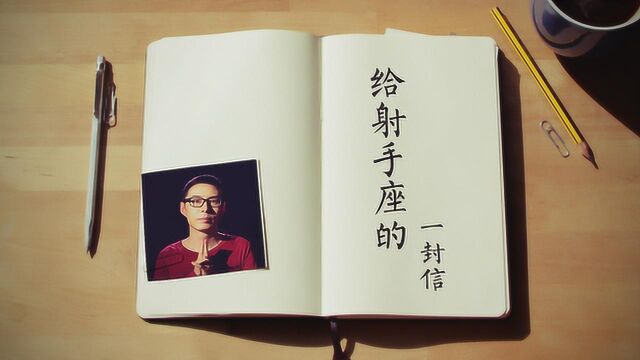 给射手座的
一封信